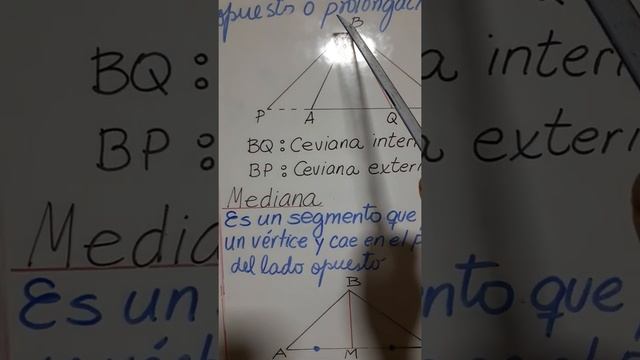 opuesto o prolongac
B
P A Q
BQ: Ceviana inter
BP: Ceviana exter
Mediana
Es un segmento que
un vértice y cae en el p
del lado opuesto
B
A M